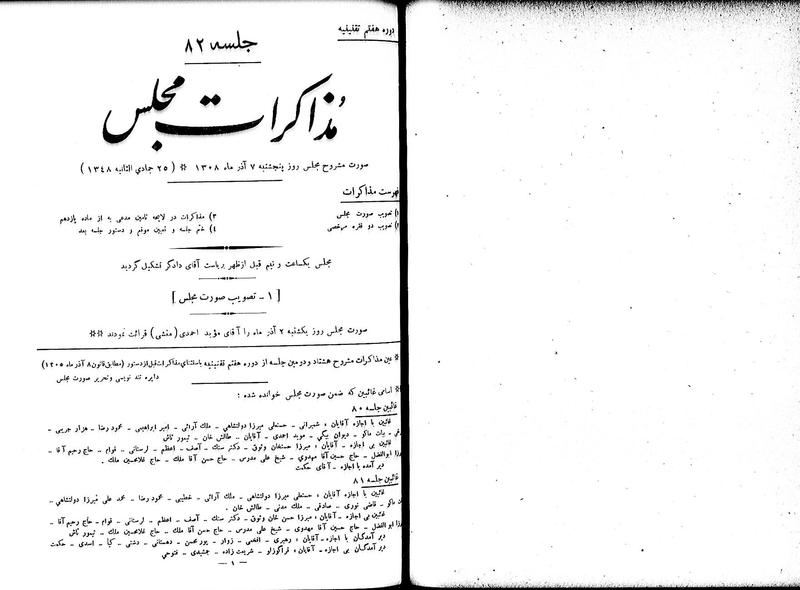 دوره هفتم تقنینیه
جلسه ۸۲
مذاکرات مجلس
صورت مشروح مجلس روز پنجشنبه ۷ آذر ماه ۱۳۰۸ * (۲۵ جمادی الثانیه ۱۳۴۸)
فهرست مذاکرات
۱) تصویب صورت مجلس
۲) تصویب دو فقره مرخصی
۳) مذاکرات در لایحه تامین مدعی به از ماده یازدهم
۴) ختم جلسه و تعیین موقع و دستور جلسه بعد
مجلس یکساعت و نیم قبل از ظهر بریاست آقای دادگر تشکیل گردید
[ ۱ ـ تصویب صورت مجلس ]
صورت مجلس روز یکشنبه ۲ آذر ماه را آقای مؤید احمدی (منشی) قرائت نمودند **
* عین مذاکرات مشروح هشتاد و دومین جلسه از دوره هفتم تقنینیه باستثنای مذاکرات قبل از دستور (مطابق قانون ۸ آذر ماه ۱۳۰۵)
دایره تند نویسی و تحریر صورت مجلس
** اسامی غائبین که ضمن صورت مجلس خوانده شده :
غائبین جلسه ۸۰
غائبین با اجازه آقایان : شیرانی ـ حسنعلی میرزا دولتشاهی ـ ملک آرائی ـ امیر ابراهیمی ـ محمود رضا ـ هزار جریبی ـ
بیات ماکو ـ دیوان بیگی ـ موید احمدی ـ آقایان ـ طالش خان ـ تیمور تاش
غائبین بی اجازه ـ آقایان : میرزا حسنخان وثوق ـ دکتر سنک ـ آصف ـ اعظم ـ لرستانی ـ قوام ـ حاج رحیم آقا ـ
ابوالفضل ـ حاج حسین آقا مهدوی ـ شیخ علی مدرس ـ حاج حسن آقا ملک ـ حاج غلامحسین ملک .
دیر آمده با اجازه ـ آقای حکمت
غائبین جلسه ۸۱
غائبین با اجازه آقایان : حسنعلی میرزا دولتشاهی ـ ملک آرائی ـ خطیبی ـ محمود رضا ـ محمد علی میرزا دولتشاهی ـ
ماکو ـ قاضی نوری ـ صادقی ـ ملک مدنی ـ طالش خان .
غائبین بی اجازه ـ آقایان : میرزا حسن خان وثوق ـ دکتر سنک ـ آصف ـ اعظم ـ لرستانی ـ قوام ـ حاج رحیم آقا ـ
ابو الفضل ـ حاج حسین آقا مهدوی ـ شیخ علی مدرس ـ حاج حسن آقا ملک ـ حاج غلامحسین ملک ـ تیمور تاش
دیر آمدگان با اجازه ـ آقایان : رهبری ـ افخمی ـ زوار ـ پور محسن ـ دهستانی ـ دشتی ـ کیا ـ اسدی ـ حکمت
دیر آمدگان بی اجازه ـ آقایان : قراگوزلو ـ شریعت زاده ـ جمشیدی ـ فتوحی
ـ ۱ ـ